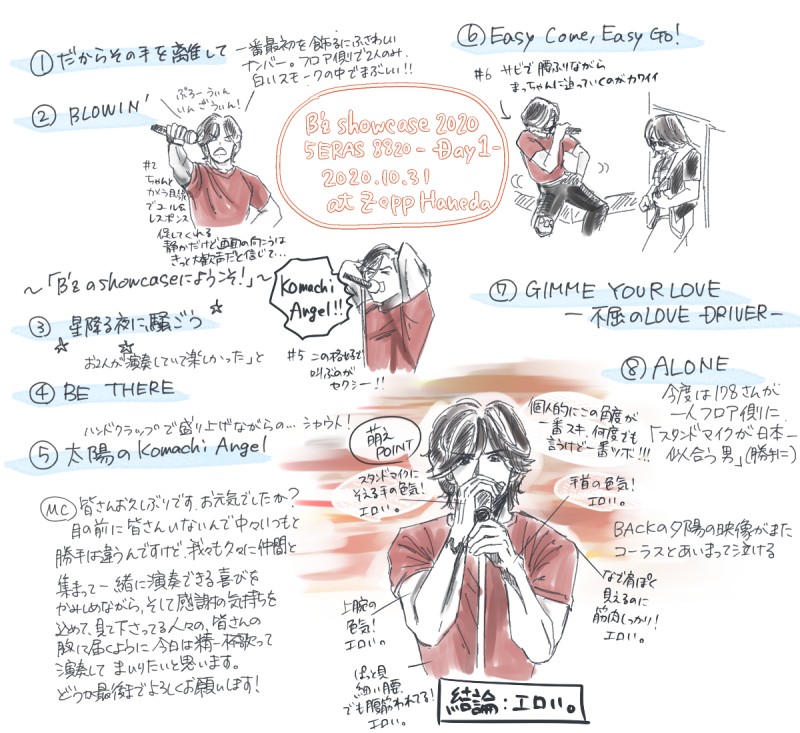 ① だからその手を離して
一番最初を飾るにふさわしい
ナンバー。フロア側で2人のみ。
白いスモークの中でまぶしい!!
② BLOWIN'
ぷろーうぃん
いんざうぃん!
#2
ちゃんと
カメラ目線
でコール&
レスポンス
促してくれる
静かだけど画面の向こうは
きっと大歓声だと信じて…
B'z showcase 2020
5 ERAS 8820 - Day 1 -
2020.10.31
at Zepp Haneda
⑥ Easy Come, Easy Go!
#6 サビで腰ふりながら
まっちゃんに迫っていくのがカワイイ
～「B'zのshowcaseにようこそ!」～
③ 星降る夜に騒ごう
お2人が演奏していて楽しかった」と
④ BE THERE
ハンドクラップで盛り上げながらの… シャウん!
⑤ 太陽のKomachi Angel
Komachi
Angel!!
#5 この格好で
叫ぶのが
セクシー!!
⑦ GIMME YOUR LOVE
- 不屈のLOVE DRIVER -
⑧ ALONE
今度は178さんが
一人フロア側に
「スタンドマイクが日本一
似合う男」(勝手に)
BACKの夕陽の映像がまた
コーラスとあいまって泣ける
MC 皆さんお久しぶりです。お元気でしたか?
目の前に皆さんいないんで中々いつもと
勝手は違うんですけど、我々も久々に仲間と
集まって一緒に演奏できる喜びを
かみしめながら、そして感謝の気持ちを
込めて、見て下さってる人々の、皆さんの
胸に届くように今日は精一杯歌って
演奏してまいりたいと思います。
どうか最後までよろしくお願いします!
萌え
POINT
スタンドマイクに
そえる手の色気!
エロい。
個人的にこの角度が
一番スキ。何度でも
言うけど一番ツボ!!!
手首の色気!
エロい。
なで肩ぽく
見えるのに
筋肉しっかり!
エロい。
上腕の
色気!
エロい。
ぱっと見
細い腰、
でも腹筋われてる!
エロい。
結論:エロい。